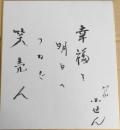 幸福を
明日へ
つなぐ
笑売人